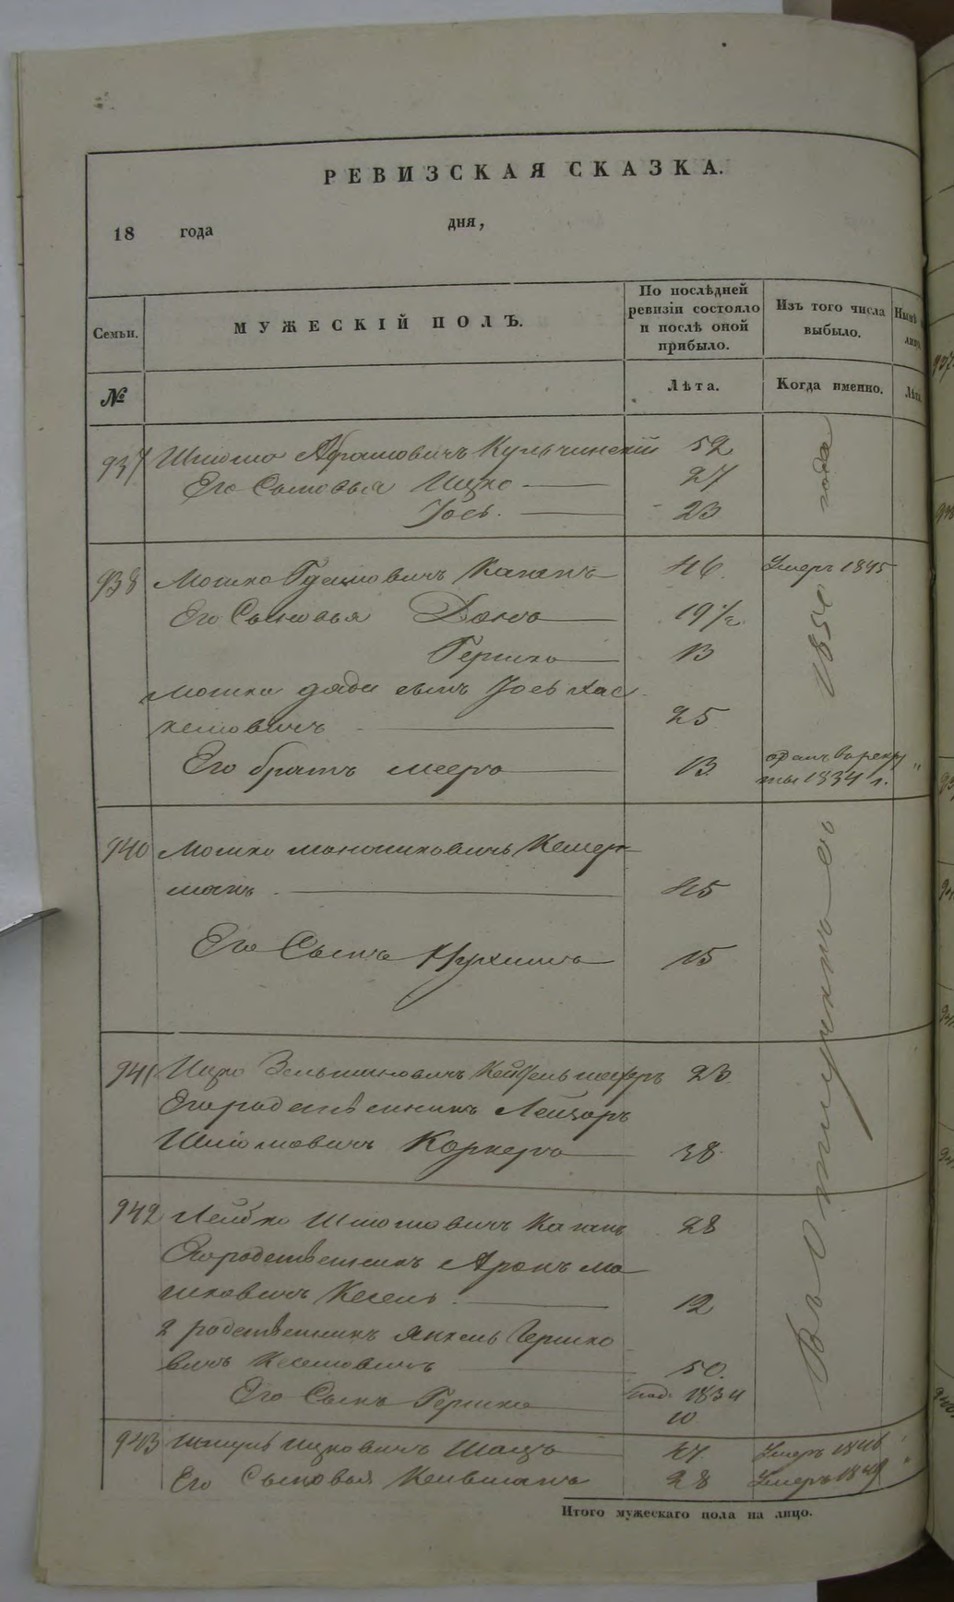 РЕВИЗСКАЯ СКАЗКА.
18 года дня,
Семьи. МУЖЕСКІЙ ПОЛЪ. По послѣдней ревизіи состояло и послѣ оной прибыло. Изъ того числа выбыло. Нынѣ
№ Лѣта. Когда именно. Лѣта
937 Шлиома Абрамовичъ Кульчинскій 52
Его Сыновья Ицко 27
Іось 23
938 Мошко Каганъ 46 Умеръ 1845
Его Сыновья 19 1/2
Гершко 13
Мошки дяди сынъ Іось Хас
келовичъ 25
Его братъ Мееръ 13 отданъ въ рекру
ты 1834 г.
940 Мошко Келер
манъ 45
Его Сынъ Нухимъ 15
941 Ицко 23
Его родственникъ Лейзоръ
Шлиомовичъ 38
942 Лейбко Шлиомовичъ Каганъ 28
Его родственникъ Аронъ Мо
шковичъ 12
2 родственникъ Янкель Гершко
вичъ 50
Его Сынъ Гершко 1834
10
943 Ицковичъ 47 Умеръ 1846
Его Сыновья Кельманъ 28 Умеръ 1849
Въ отлучкѣ съ 1850 года
Итого мужескаго пола на лицо.